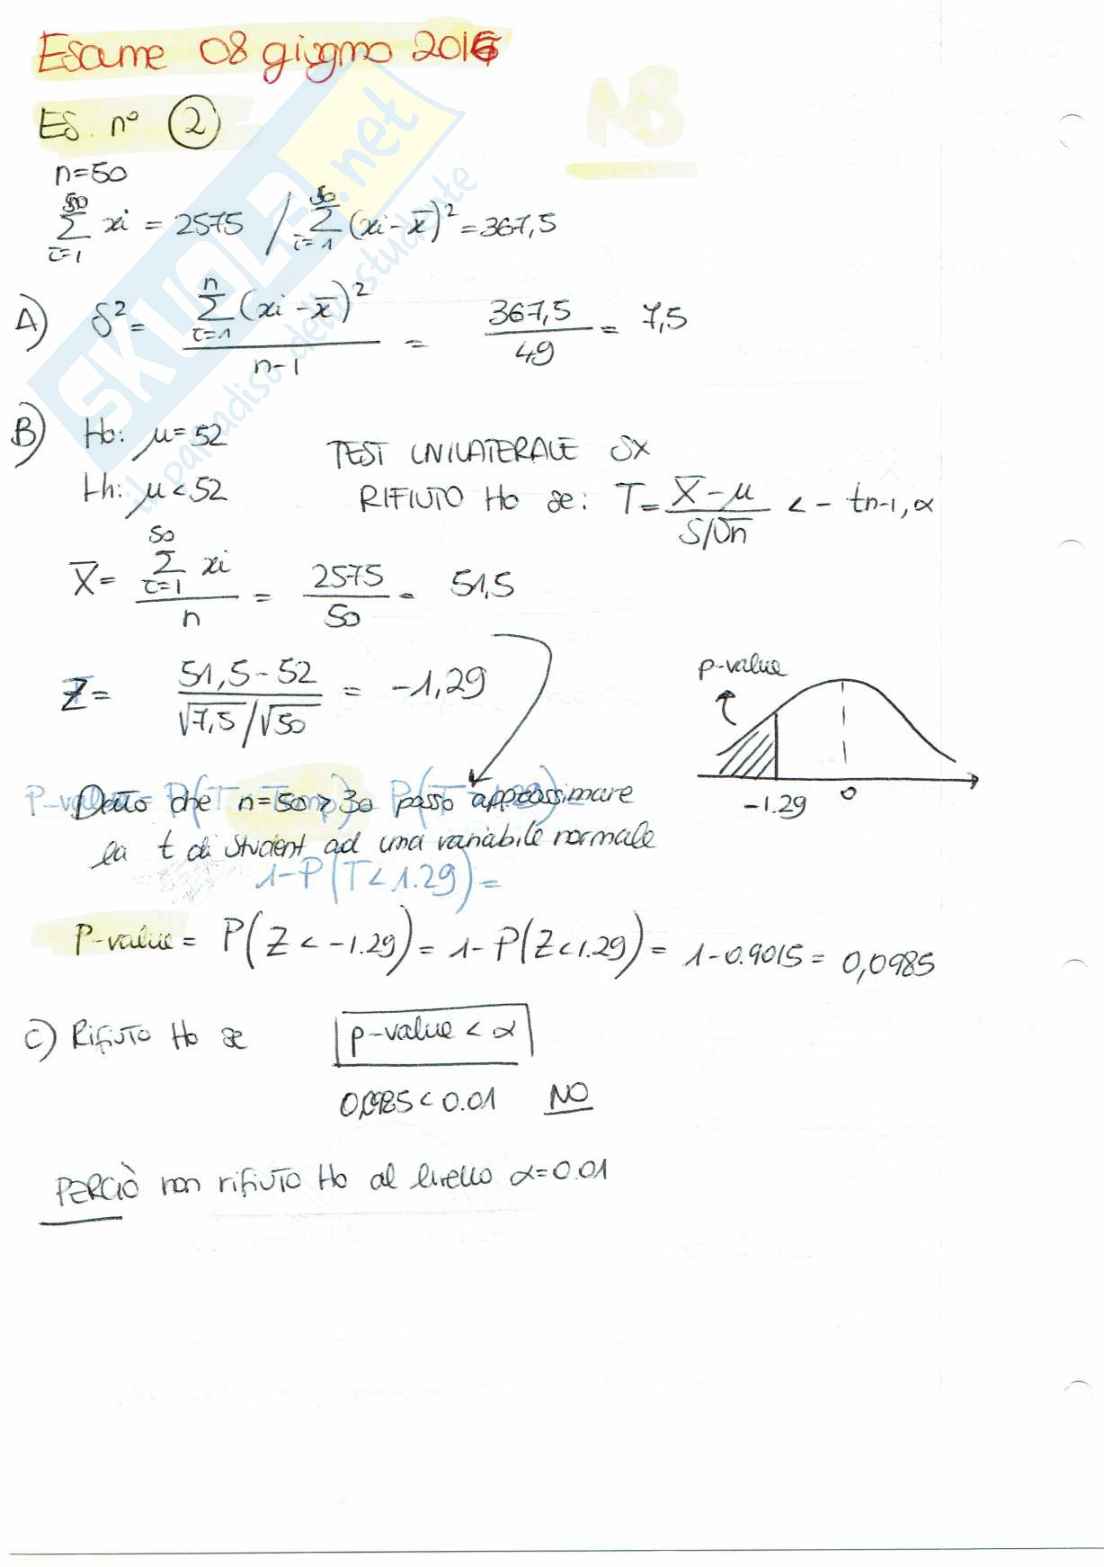 Esame 08 giugno 2016
NB
ES. n° 2
n=50
50 ∑ i=1 xi = 2575 / 50 ∑ i=1 (xi - x̄)² = 367,5
A) S² = n ∑ i=1 (xi - x̄)² / n-1 = 367,5 / 49 = 7,5
B) Ho: μ = 52
TEST UNILATERALE SX
H1: μ < 52
RIFIUTO Ho se: T = X̄ - μ / S/√n < - tn-1, α
X̄ = 50 ∑ i=1 xi / n = 2575 / 50 = 51,5
Z = 51,5 - 52 / √7,5 / √50 = -1,29
p-value
-1.29 0
Dato che n=50 > 30 posso approssimare
la t di Student ad una variabile normale
1-P(T<1.29)=
P-value = P(Z < -1.29) = 1 - P(Z<1.29) = 1 - 0.9015 = 0,0985
C) Rifiuto Ho se p-value < α
0,0985 < 0.01 NO
PERCIÒ non rifiuto Ho al livello α=0.01
SKUOLA.net
il paradiso dello studente